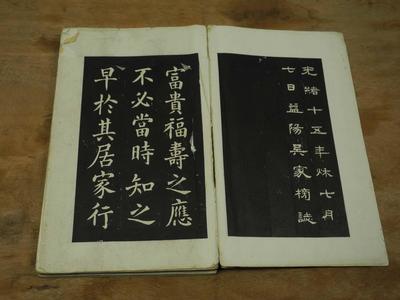 光緒十五年秋七月
七日益陽吳家榜誌
富貴福壽之應
不必當時知之
早於其居家行